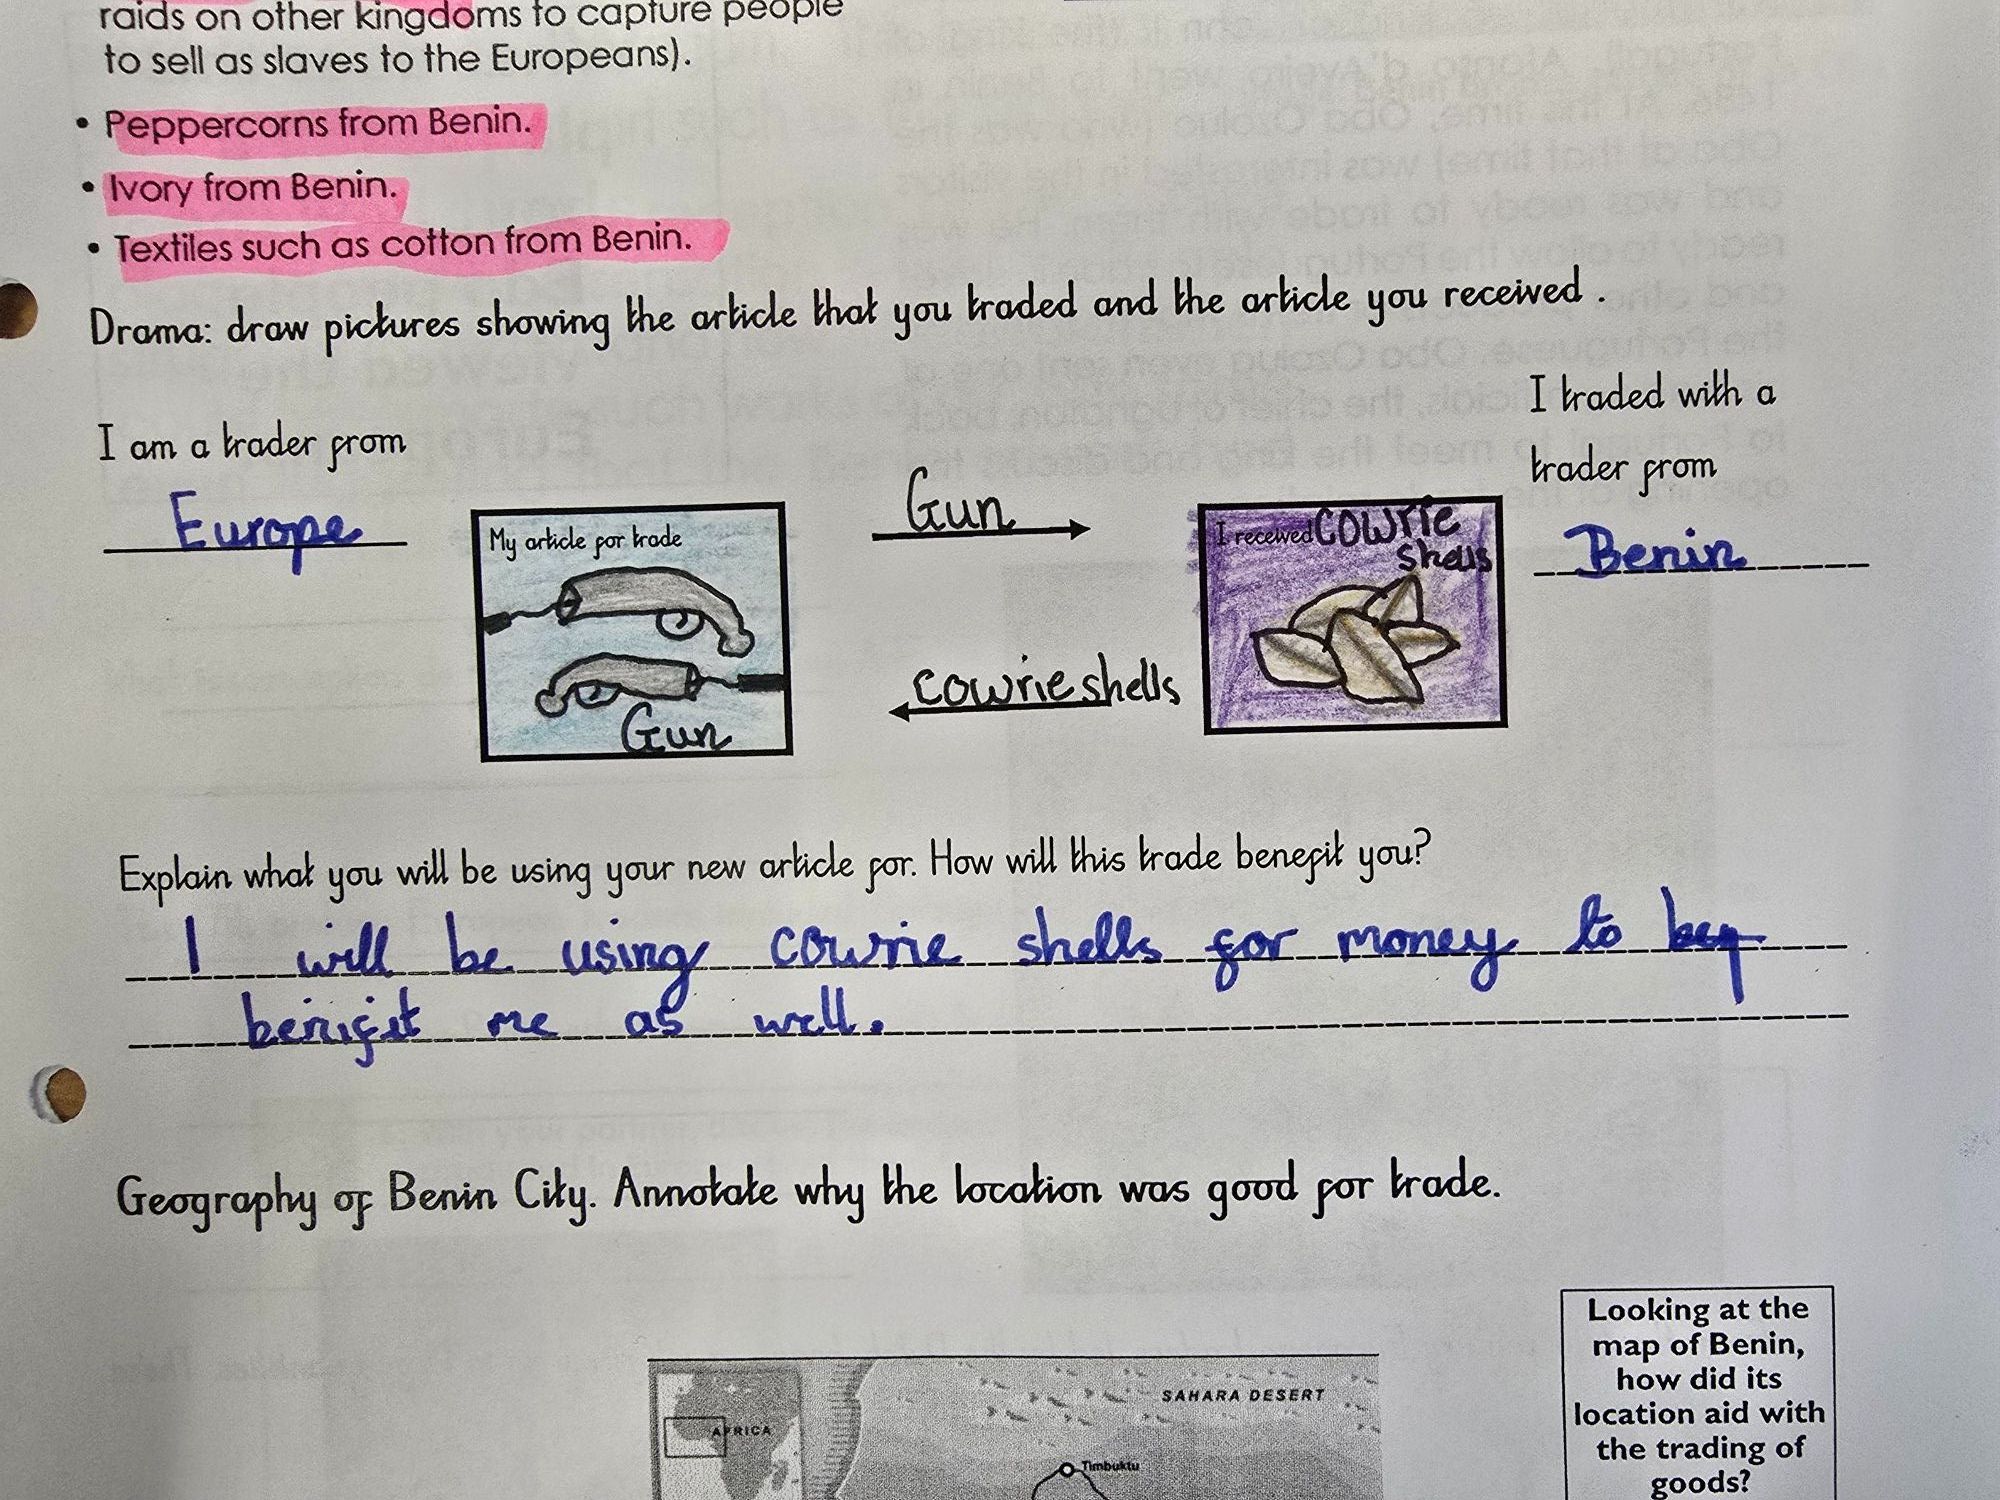 raids on other kingdoms to capture people
to sell as slaves to the Europeans).
• Peppercorns from Benin.
• Ivory from Benin.
• Textiles such as cotton from Benin.
Drama: draw pictures showing the article that you traded and the article you received .
I am a trader from
Europe
My article for trade
Gun
Gun
cowrie shells
I received cowrie
shells
I traded with a
trader from
Benin
Explain what you will be using your new article for. How will this trade benefit you?
I will be using cowrie shells for money to
benifit me as well.
Geography of Benin City. Annotate why the location was good for trade.
AFRICA
SAHARA DESERT
Timbuktu
Looking at the
map of Benin,
how did its
location aid with
the trading of
goods?